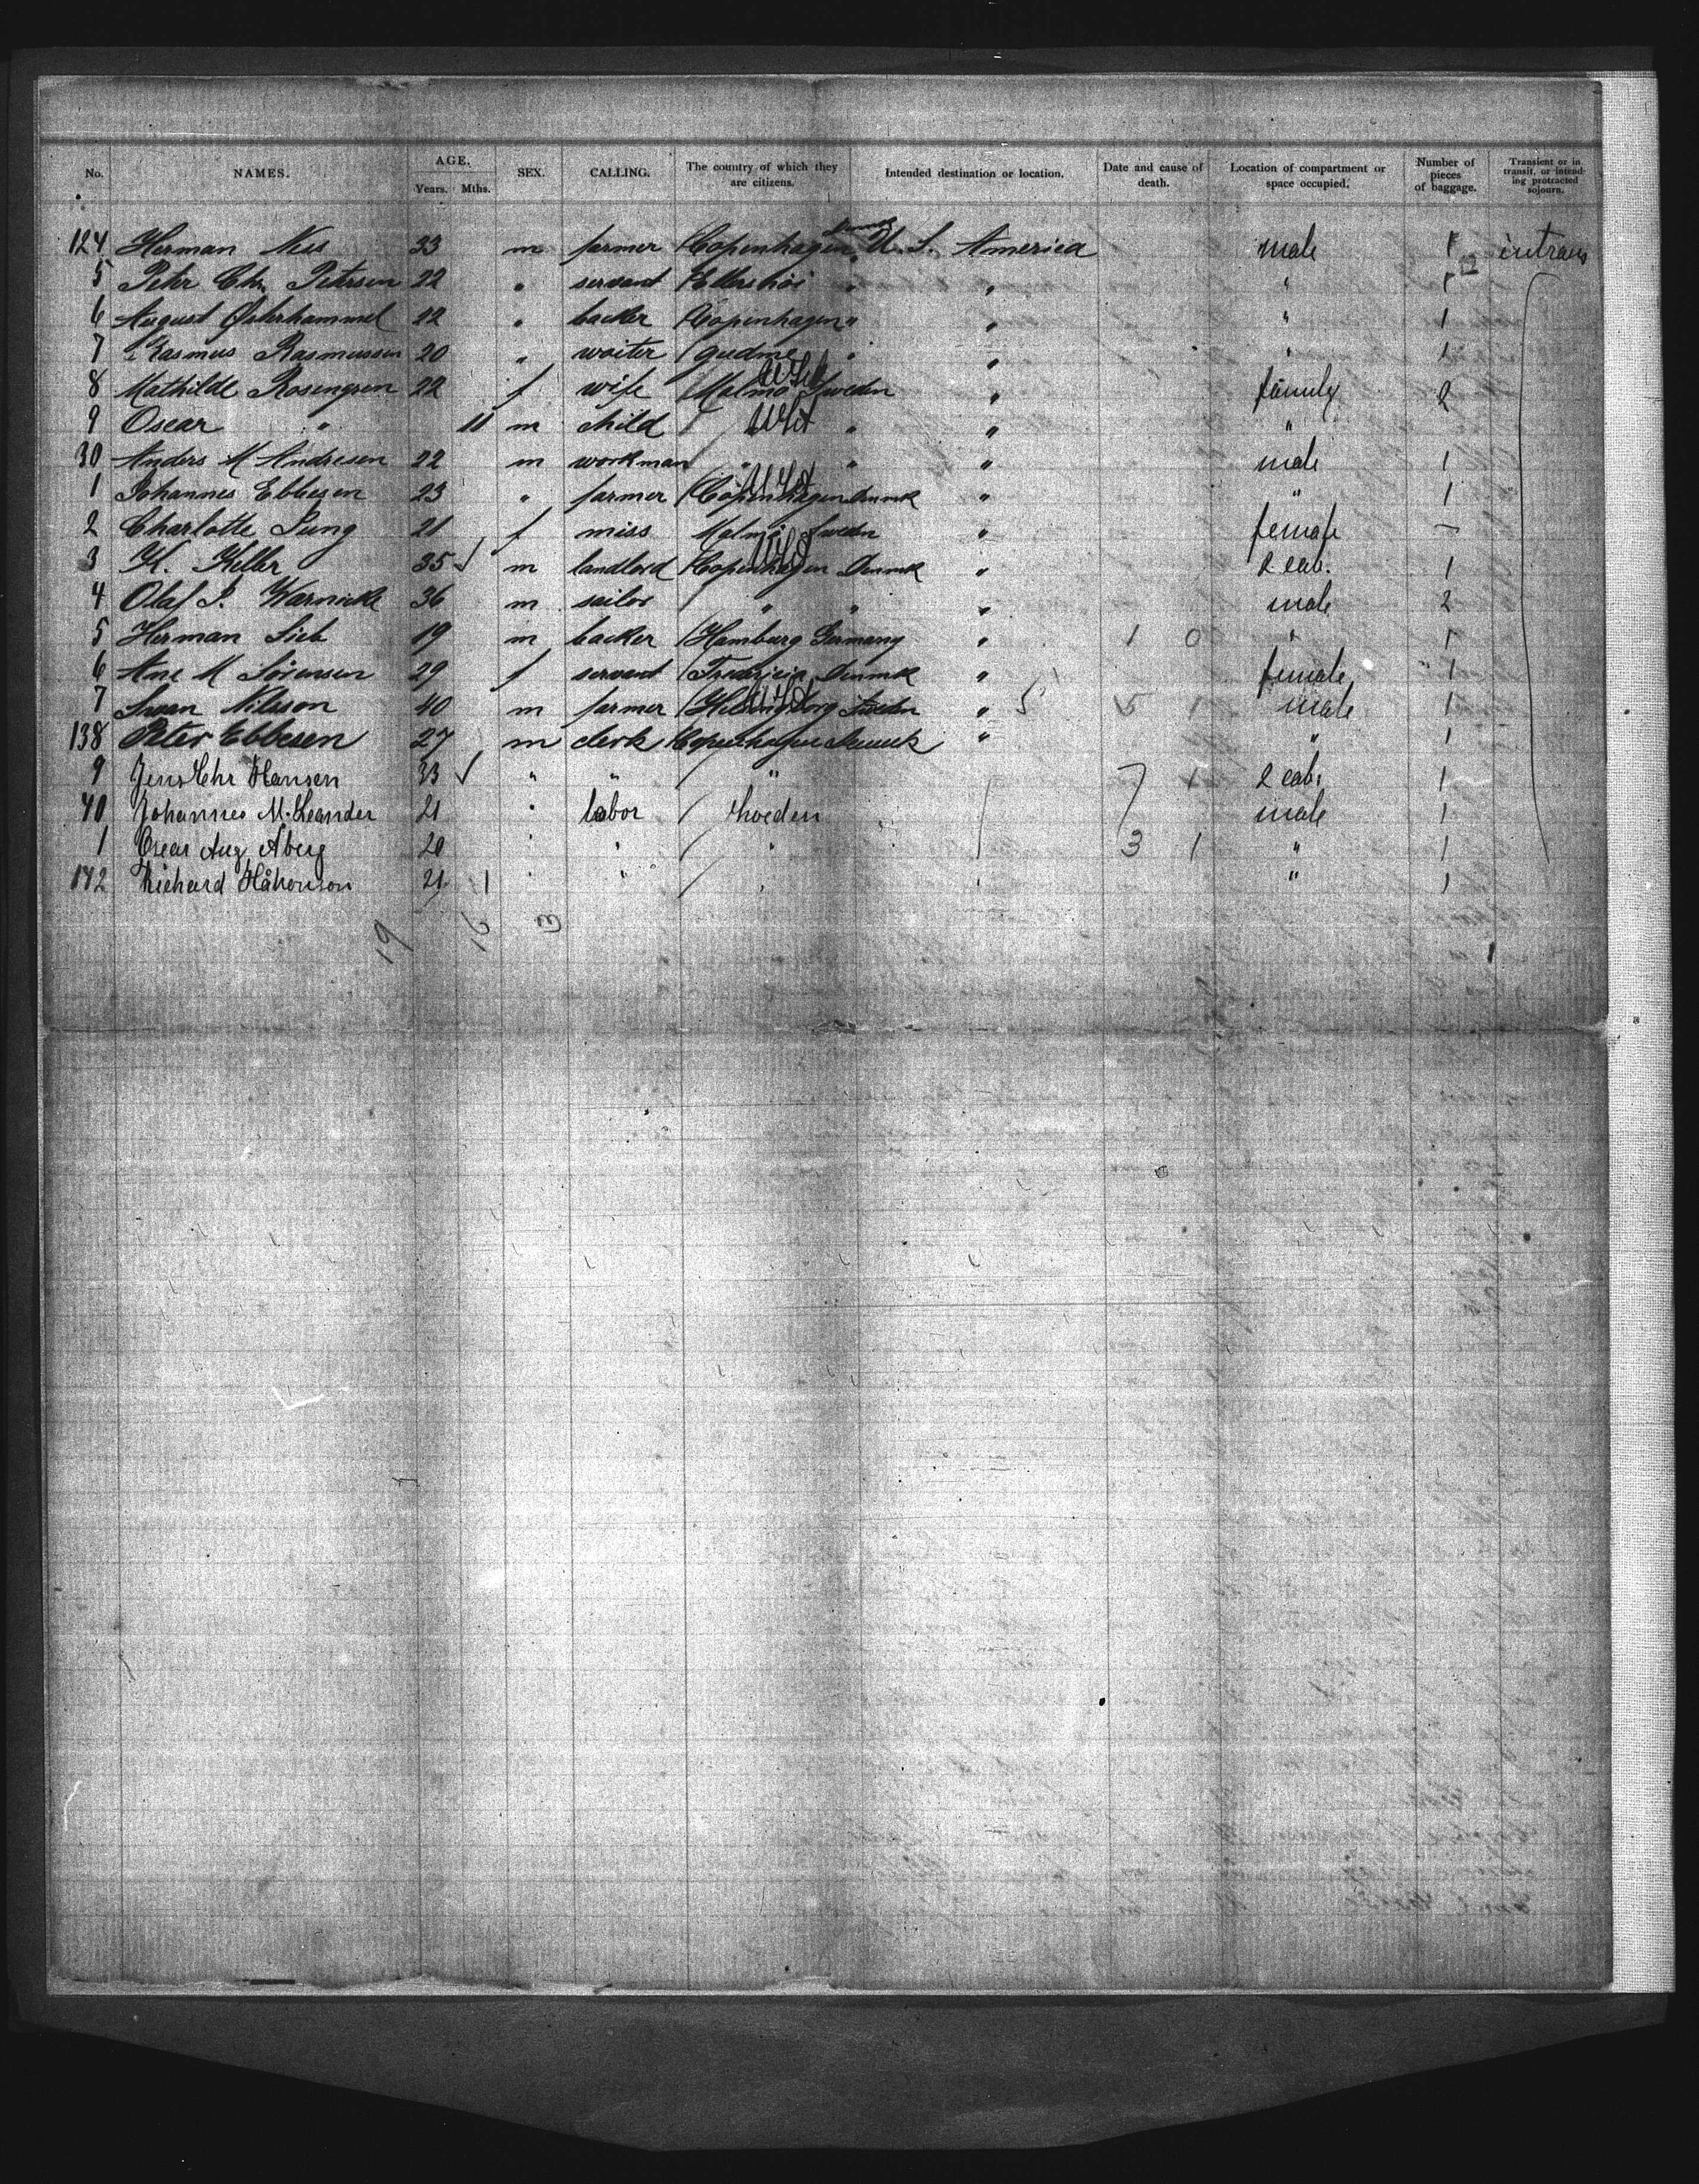 No. NAMES. AGE. Years. Mths. SEX. CALLING. The country of which they are citizens. Intended destination or location. Date and cause of death. Location of compartment or space occupied. Number of pieces of baggage. Transient or in transit, or intending protracted sojourn.
124 Herman Ness 33 m farmer Copenhagen U. S. America male 1 intrans
5 Petr Chr. Petersen 22 " servant " " " 1
6 August Østerhammel 22 " backer Copenhagen " " " 1
7 Rasmus Rasmussen 20 " waiter gudme " " " 1
8 Mathilde Rosengren 22 f wife Malmö Sweden " family 2
9 Oscar " 11 m child " " "
30 Anders M Andresen 22 m workman " " " male 1
1 Johannes Ebbesen 23 " farmer Copenhagen Denmk " " 1
2 Charlotte Ljung 21 f miss Malmö Sweden " female —
3 K. Keller 35 m landlord Copenhagen Denmk " 2 cab. 1
4 Olaf P. Warnicke 36 m sailor " " " male 2
5 Herman Lieb 19 m backer Hamburg Germany " 1 0 " 1
6 Ane M Sörensen 29 f servant Fredericia Denmk " female 1
7 Swan Nilsson 40 m farmer Helsingborg Sweden " 5 5 1 male 1
138 Peter Ebbesen 27 m clerk Copenhagen Denmk " " 1
9 Jens Chr Hansen 33 " " " 7 1 2 cab. 1
40 Johannes M. Leander 21 " labor Sweden male 1
1 Oscar Aug Aberg 20 " " " 3 1 " 1
142 Richard Håkonson 21 " " " " 1
19 16 3